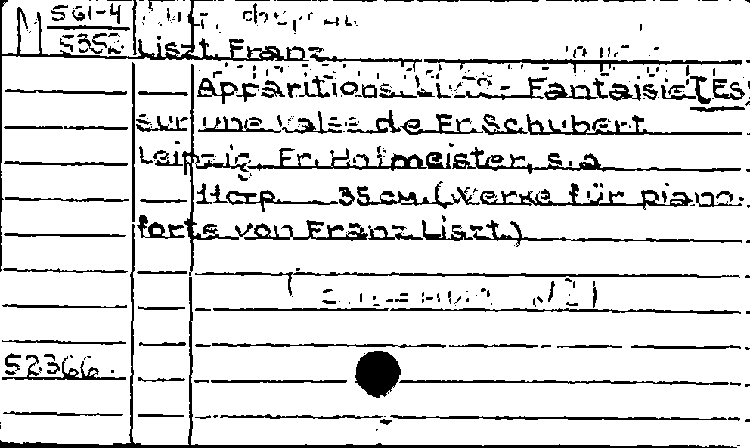 М 561-4
5352
Liszt, Franz.
Apparitions. Fantaisie [ES]
sur une valse de Fr. Schubert
Leipzig, Fr. Hofmeister, s.a.
11 стр. 35 см. (Werke für piano-
forte von Franz Liszt.)
52366.